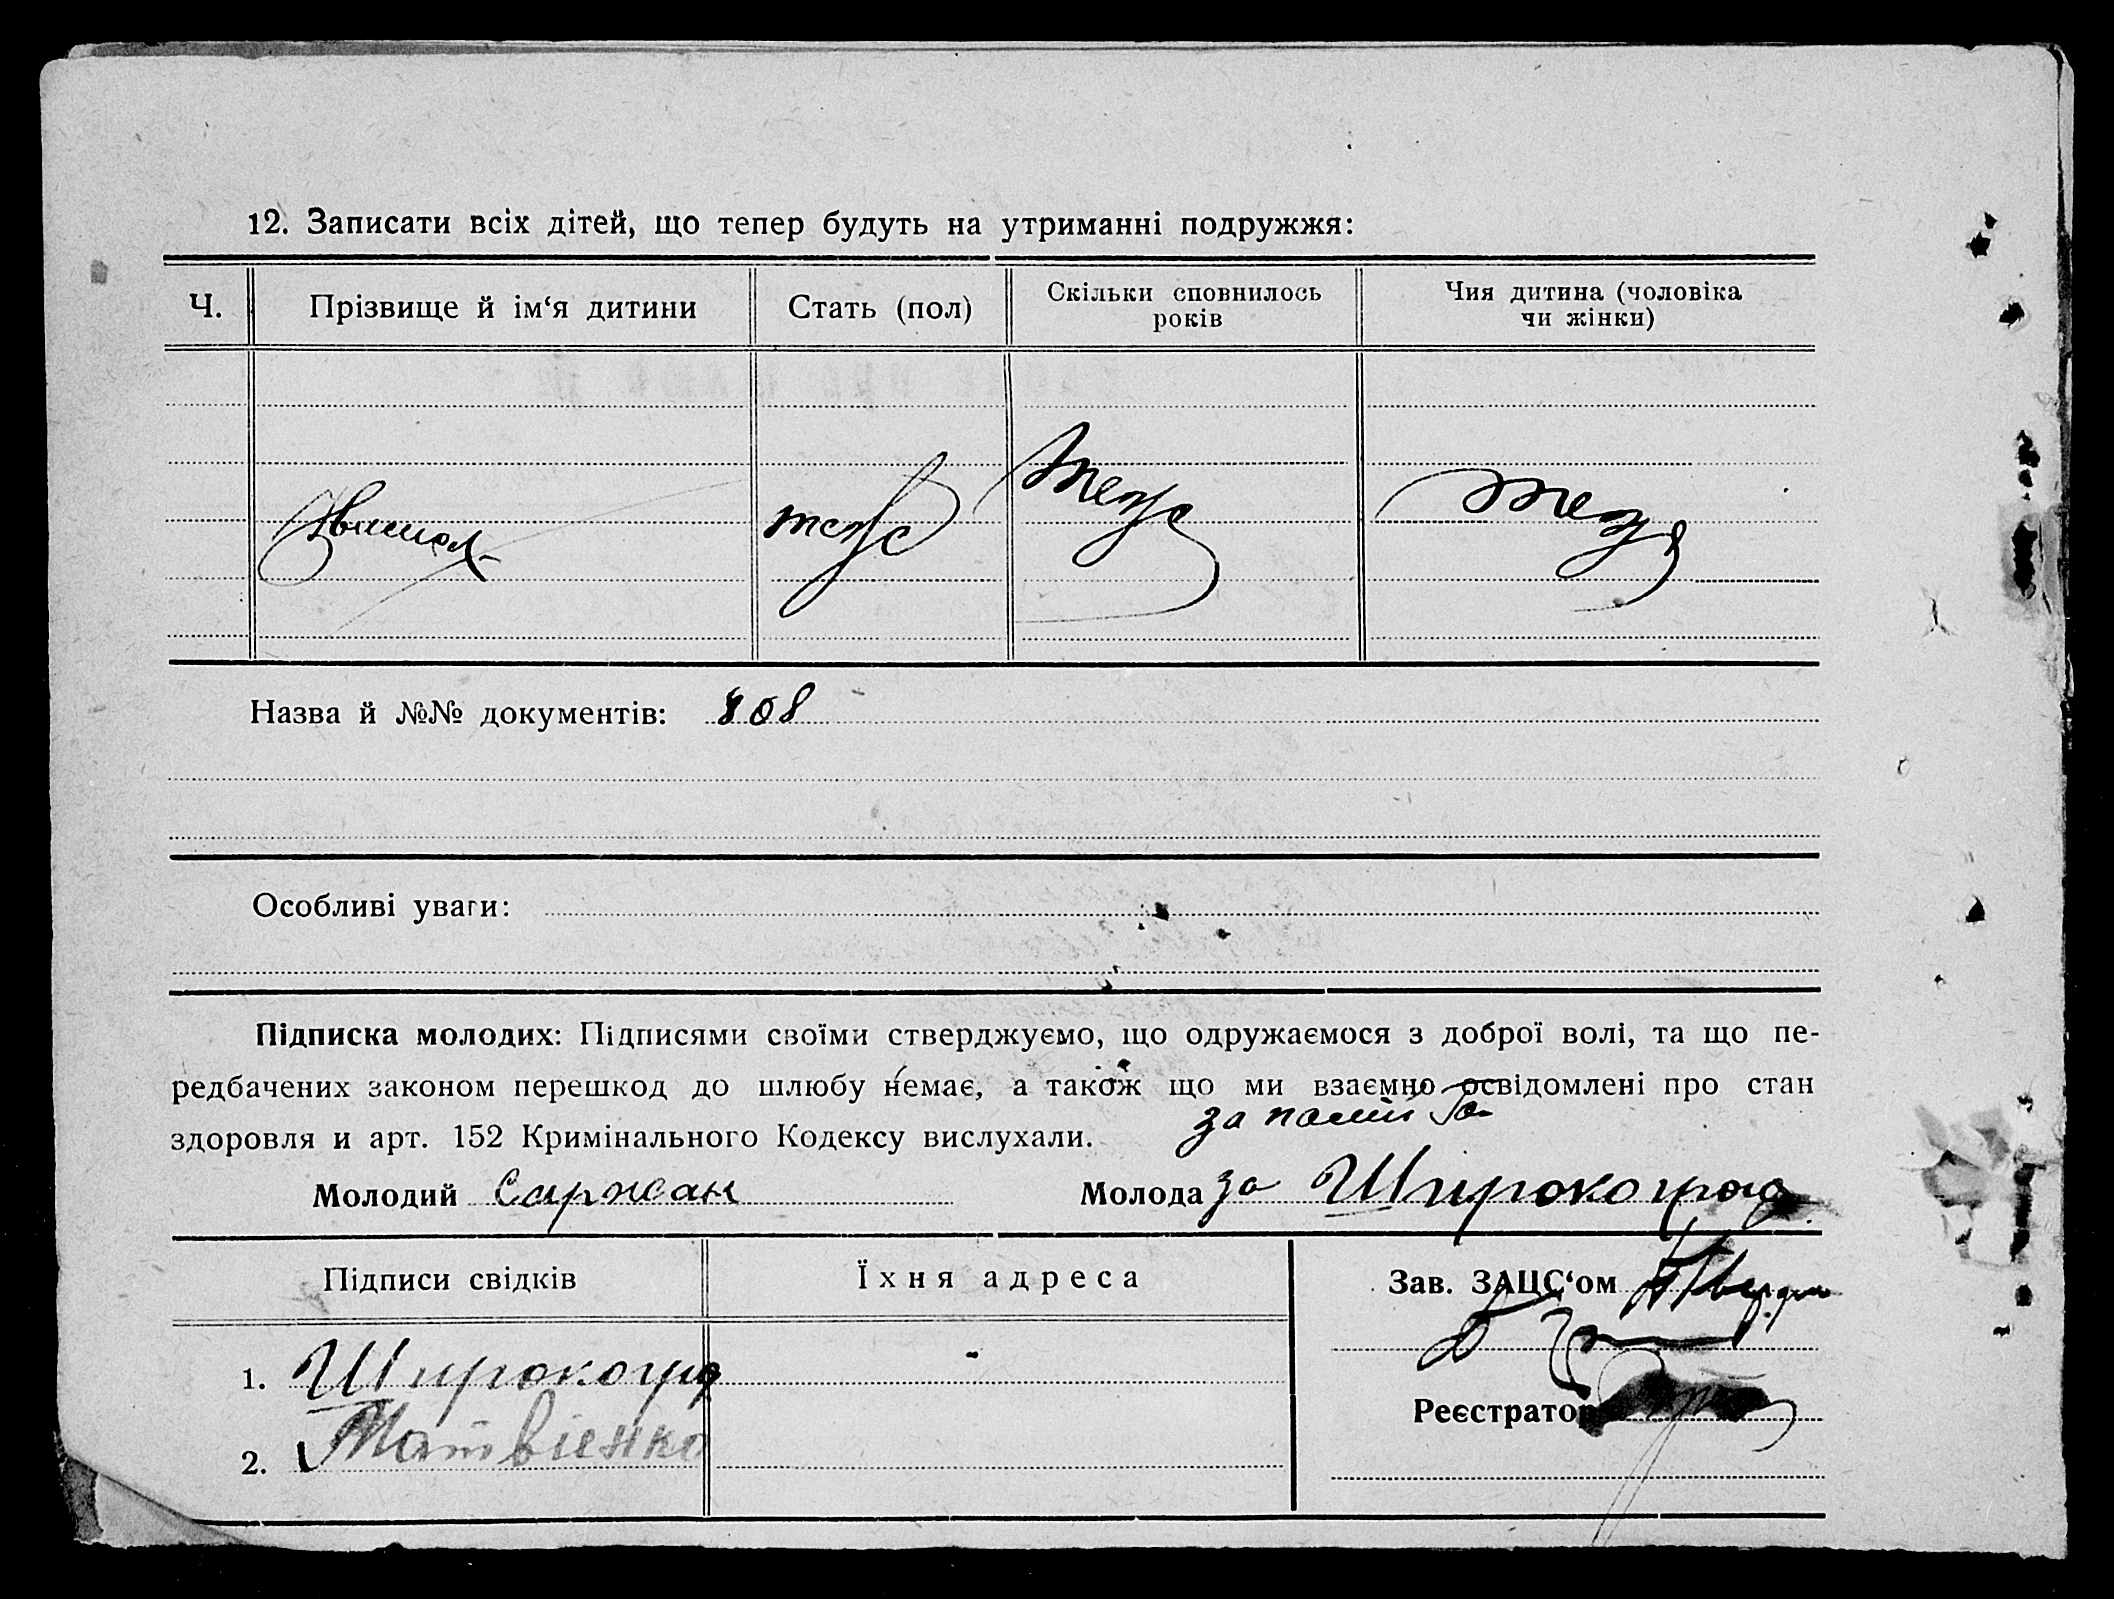 12. Записати всіх дітей, що тепер будуть на утриманні подружжя:
Ч. Прізвище й ім‘я дитини Стать (пол) Скільки сповнилось років Чия дитина (чоловіка чи жінки)
Назва й №№ документів: 808
Особливі уваги:
Підписка молодих: Підписями своїми стверджуємо, що одружаємося з доброї волі, та що пе-
редбачених законом перешкод до шлюбу немає, а також що ми взаємно освідомлені про стан
здоровля и арт. 152 Кримінального Кодексу вислухали.
Молодий Саржан Молода за Широкоград
Підписи свідків Їхня адреса Зав. ЗАЦС‘ом
1. Широкогра
Реєстратор
2. Матвіенко